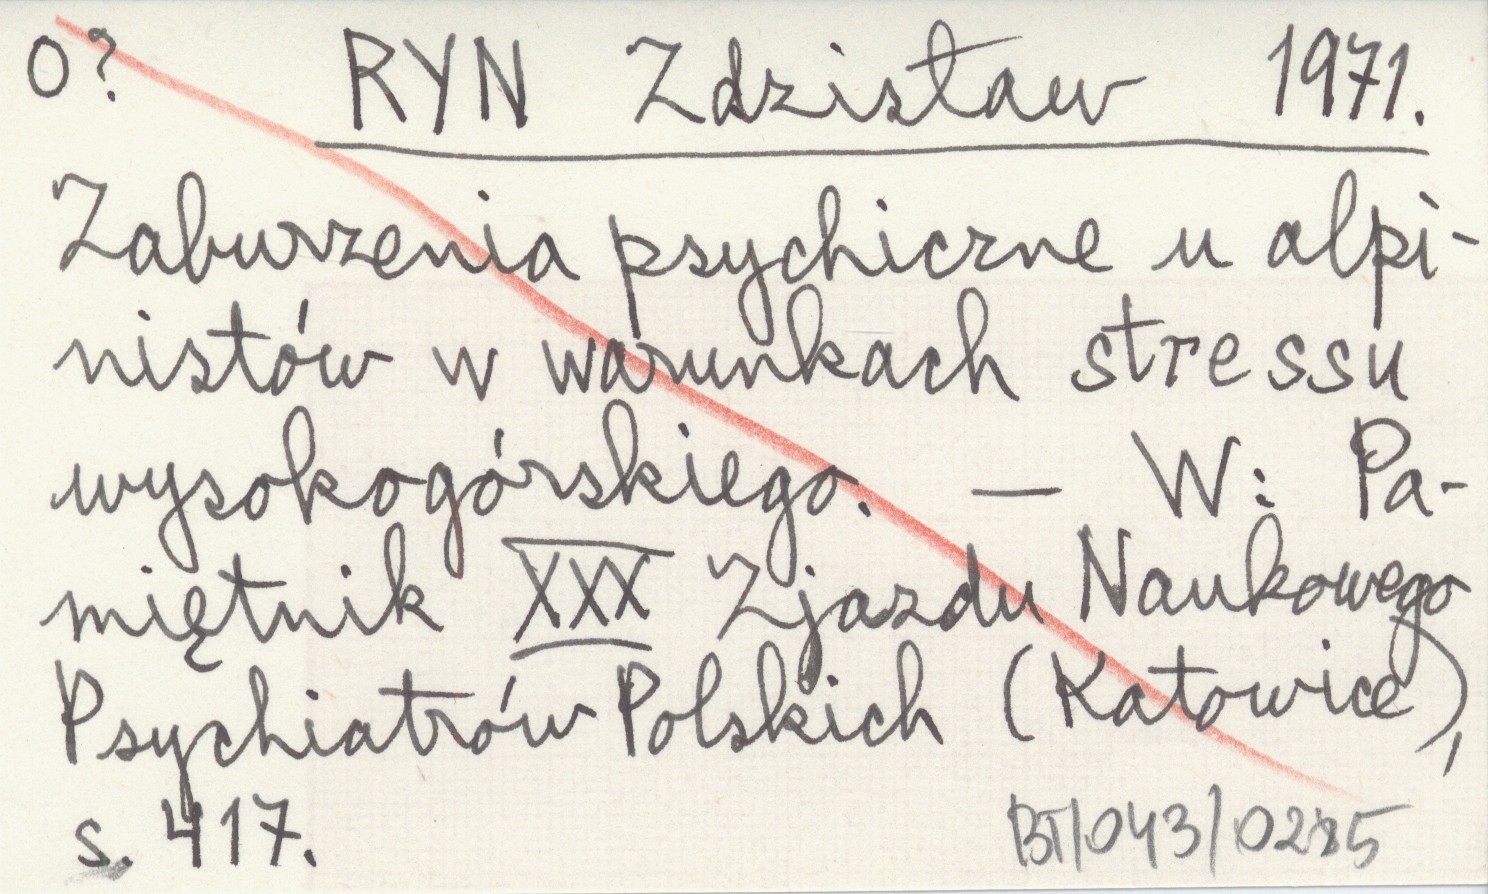 O? RYN Zdzisław 1971.
Zaburzenia psychiczne u alpi-
nistów w warunkach stressu
wysokogórskiego. — W: Pa-
miętnik XXX Zjazdu Naukowego
Psychiatrów Polskich (Katowice),
s. 417. BT/043/0285